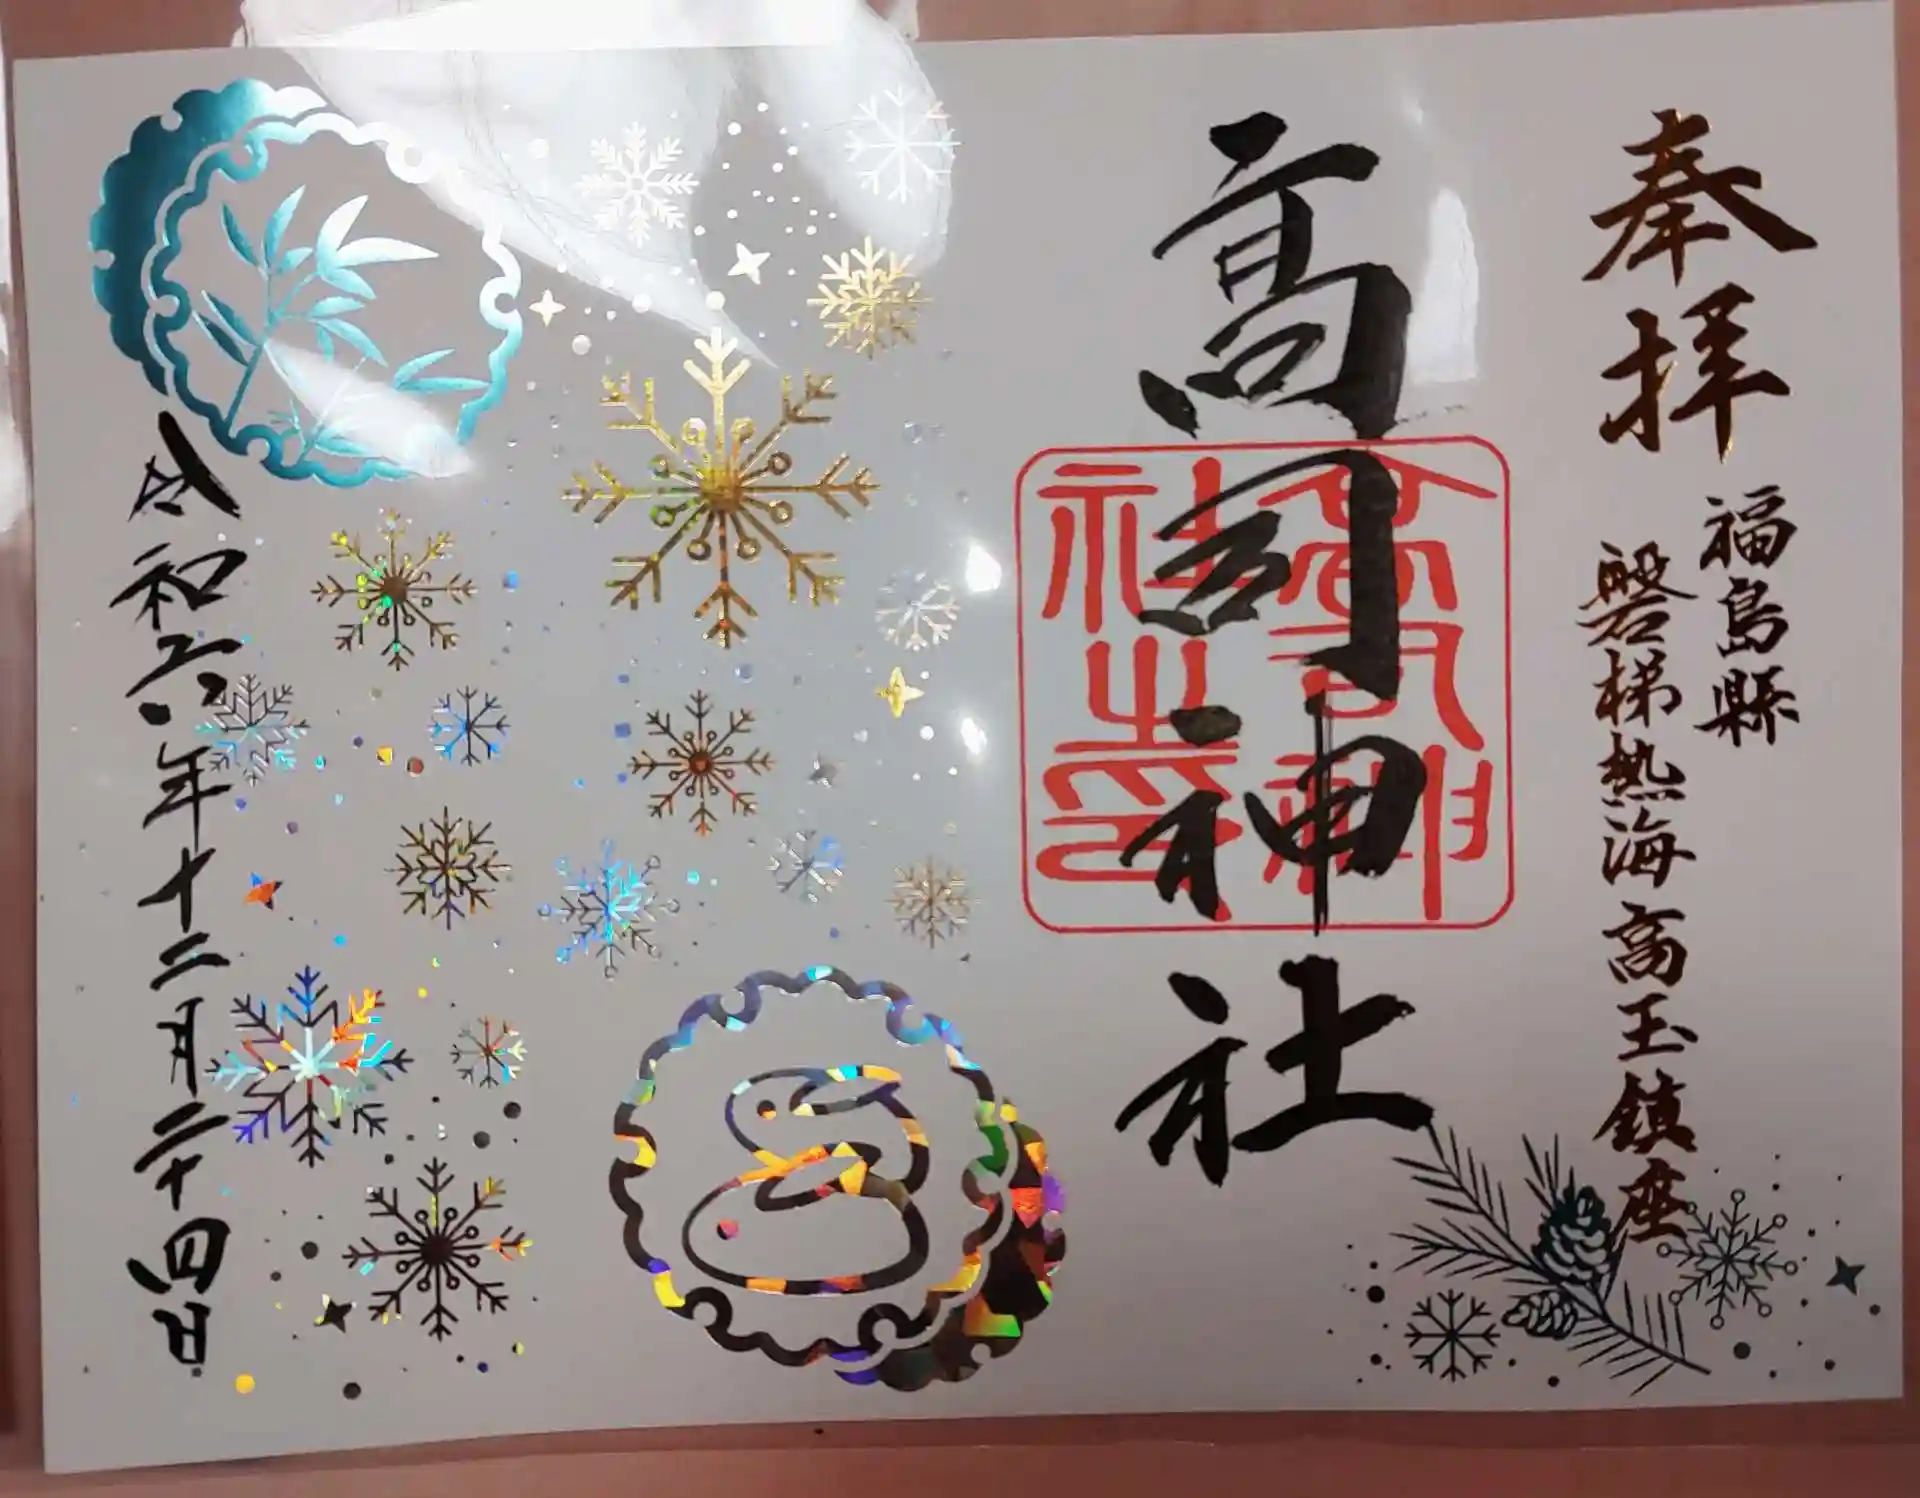 奉拝
福島縣
磐梯熱海高玉鎮座
高司神社
高司神社之印
令和六年十二月二十四日